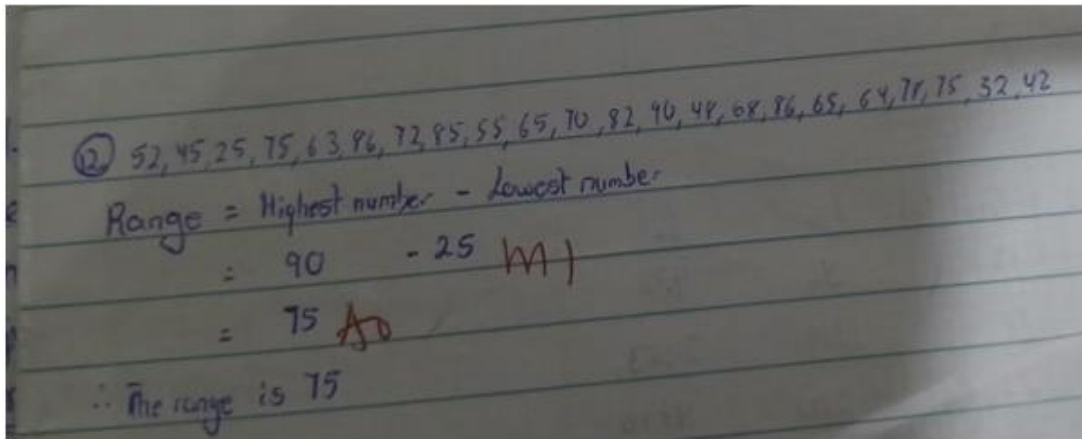 12 52, 45, 25, 75, 63, 86, 72, 85, 55, 65, 70, 82, 90, 48, 68, 86, 65, 64, 78, 75, 32, 42
Range = Highest number - Lowest number
= 90 - 25 M1
= 75 A0
∴ The range is 75